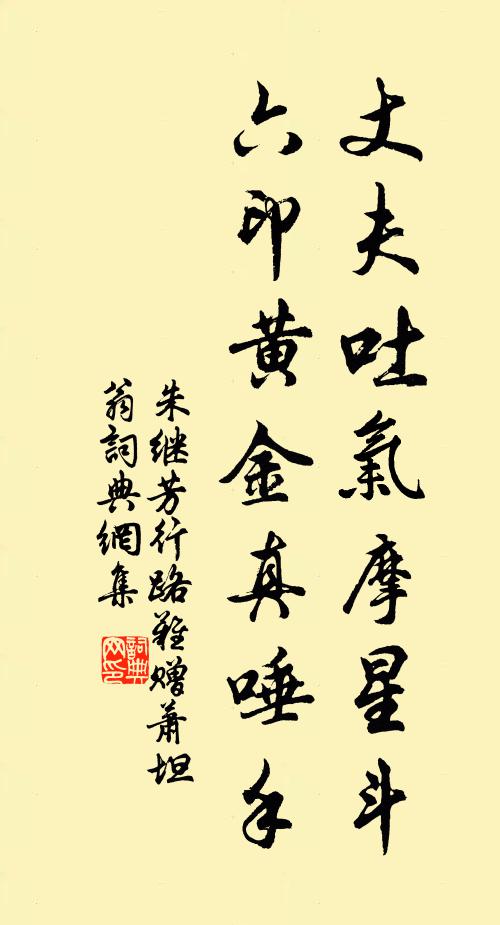 丈夫吐氣摩星斗
六印黃金真唾手
朱继芳行路難赠蕭坦
翁詞典網集
詞典網印